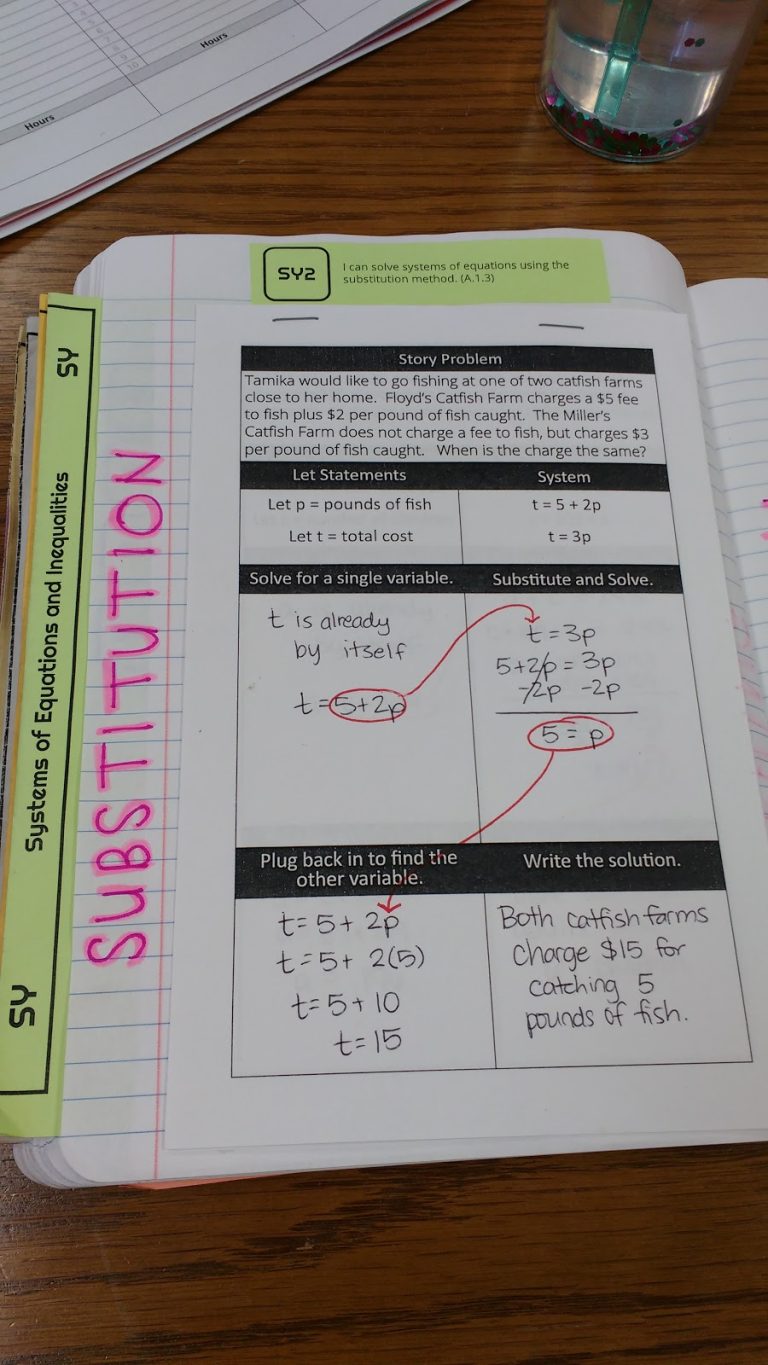 Hours
Hours
SY2
I can solve systems of equations using the
substitution method. (A.1.3)
SY
Systems of Equations and Inequalities
SY
SUBSTITUTION
Story Problem
Tamika would like to go fishing at one of two catfish farms
close to her home. Floyd's Catfish Farm charges a $5 fee
to fish plus $2 per pound of fish caught. The Miller's
Catfish Farm does not charge a fee to fish, but charges $3
per pound of fish caught. When is the charge the same?
Let Statements
System
Let p = pounds of fish
t = 5 + 2p
Let t = total cost
t = 3p
Solve for a single variable.
Substitute and Solve.
t is already
by itself
t = 5+2p
t = 3p
5+2p = 3p
-2p -2p
5 = p
Plug back in to find the
other variable.
Write the solution.
t = 5 + 2p
t = 5 + 2(5)
t = 5 + 10
t = 15
Both catfish farms
charge $15 for
catching 5
pounds of fish.